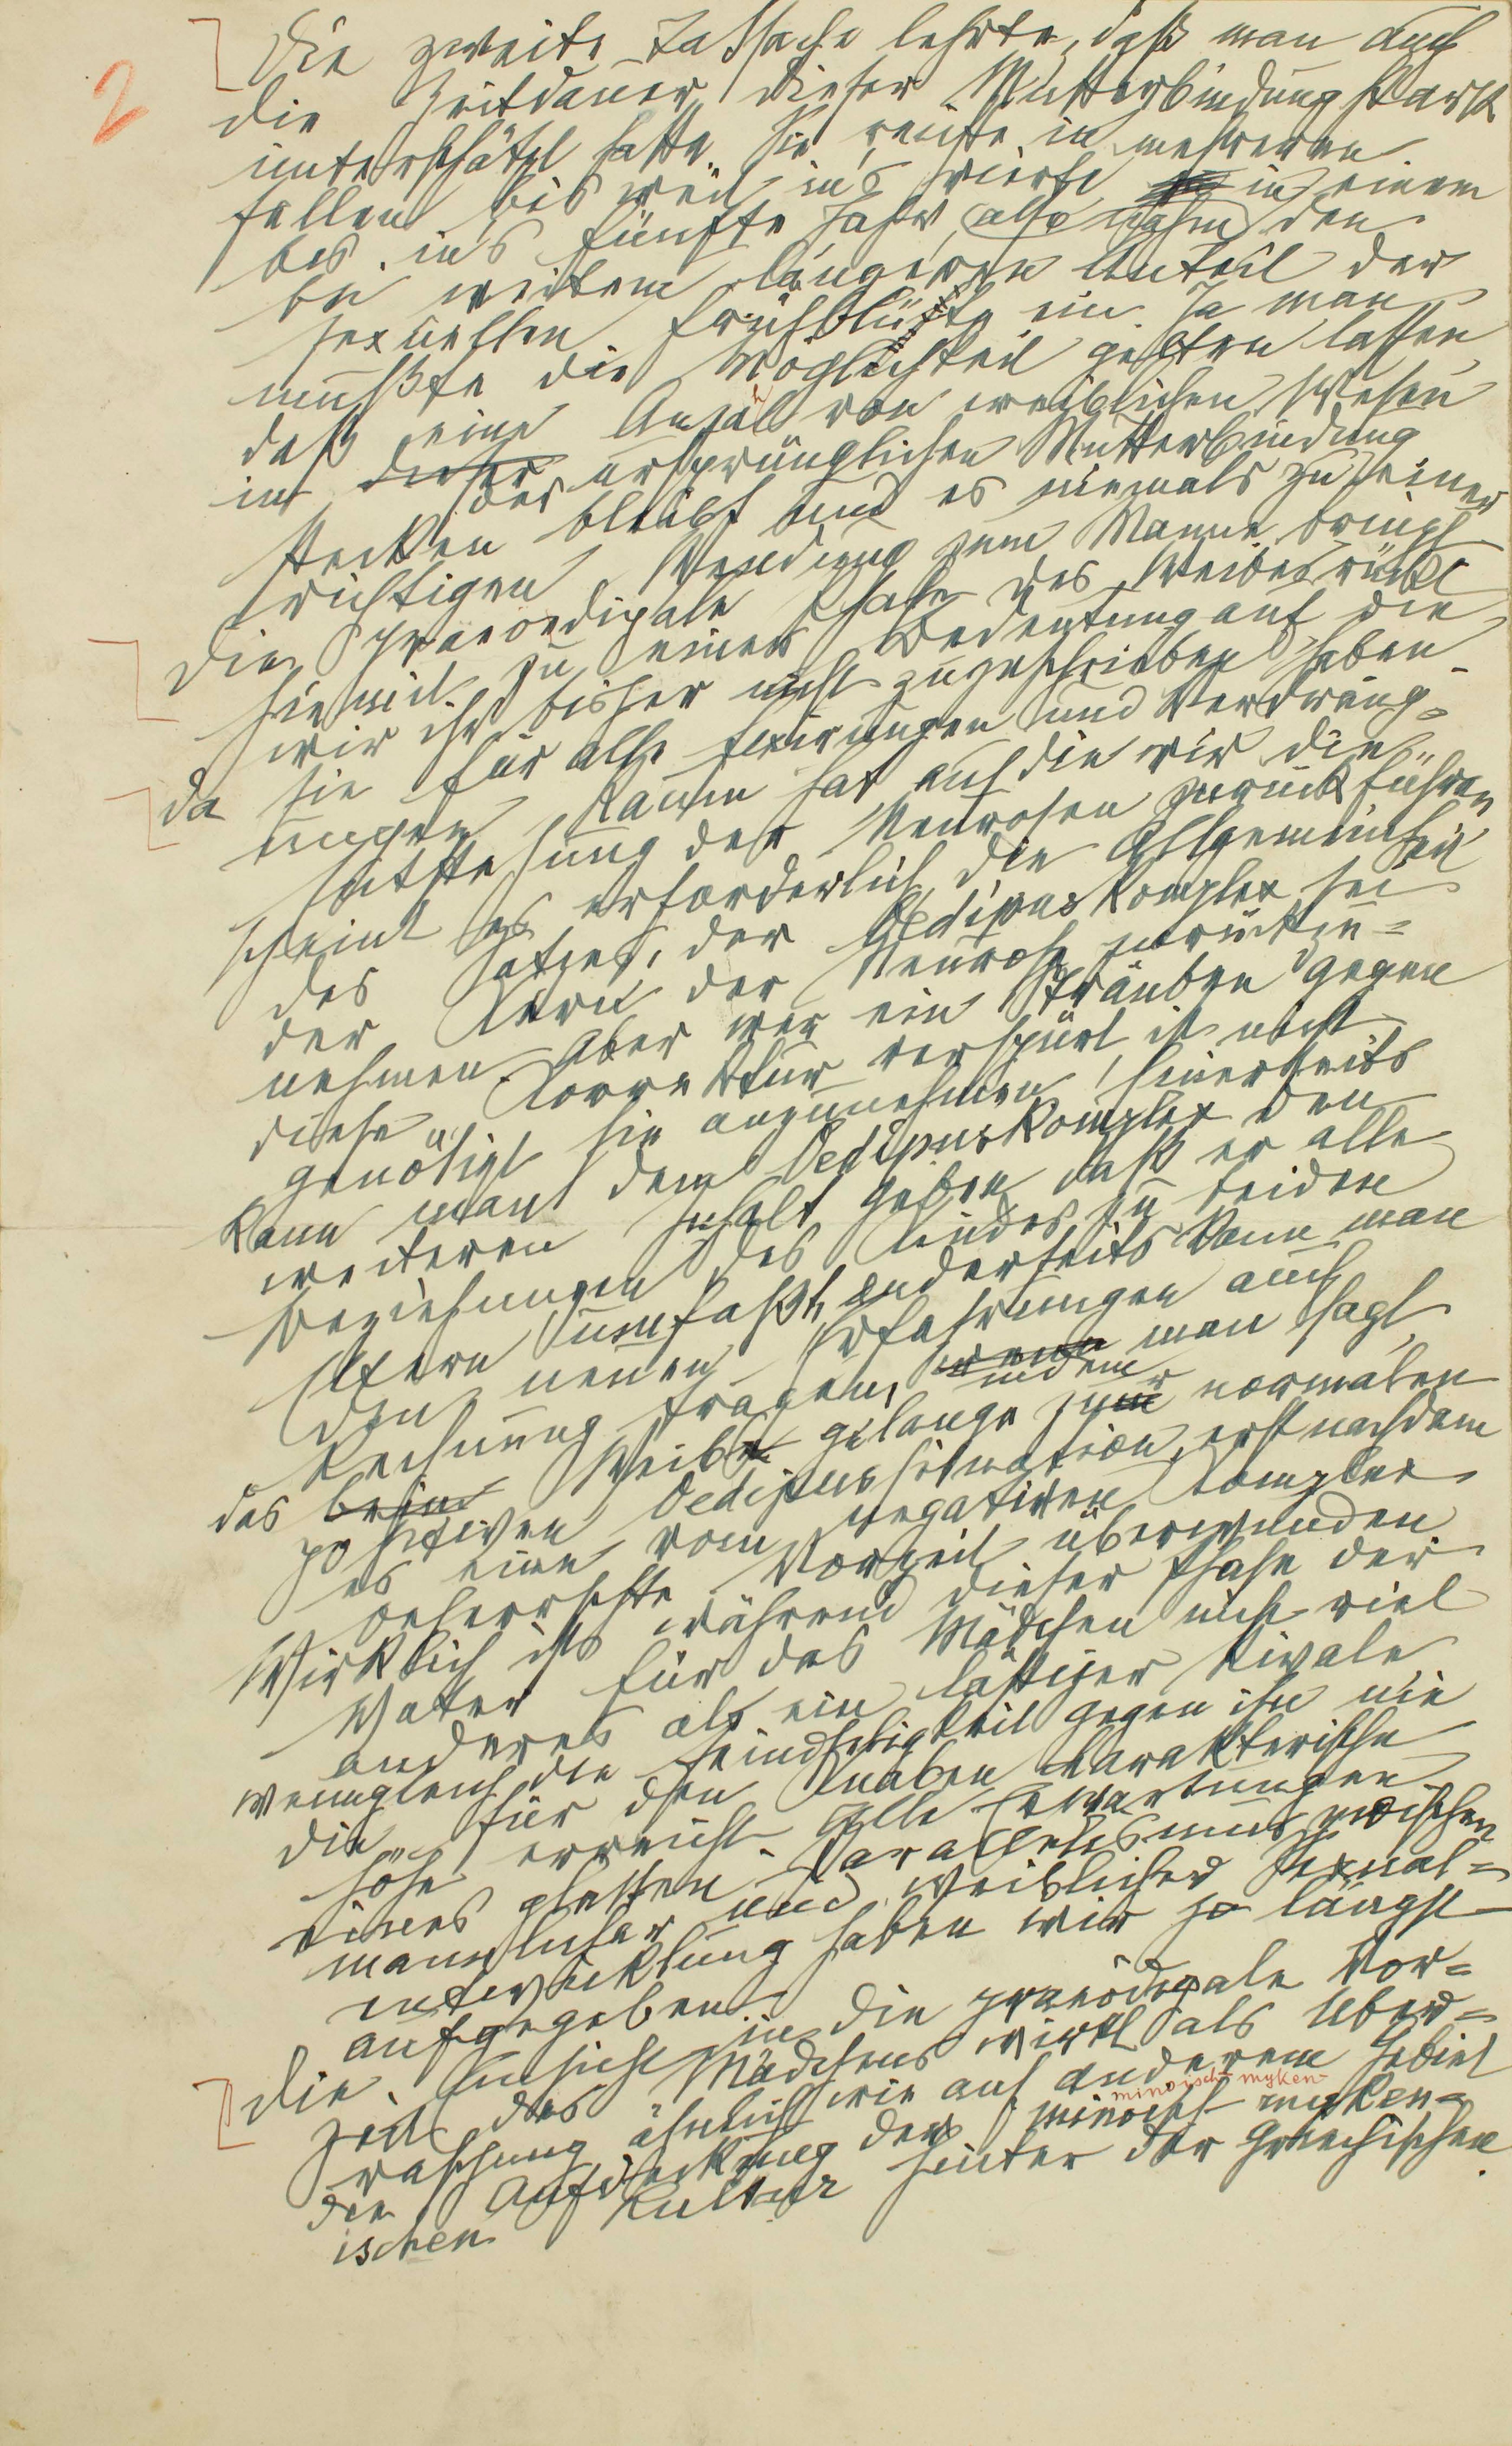 2
Die zweite Tatsache lehrte, daß man auch
die Zeitdauer dieser Mutterbindung stark
unterschätzt hatte. Sie reichte in mehreren
Fällen bis weit ins vierte, in einem
bis ins fünfte Jahr, also nahm den
bei weitem längeren Anteil der
sexuellen Frühblüte ein. Ja man
mußte die Möglichkeit gelten lassen,
daß eine Anzal von weiblichen Wesen
in dieser der ursprünglichen Mutterbindung
stecken bleibt und es niemals zu einer
richtigen Wendung zum Manne bringt.
Die praeoedipale Phase des Weibes rückt
hiemit zu einer Bedeutung auf die
wir ihr bisher nicht zugeschrieben haben.
Da sie für alle Fixirungen und Verdräng=
ungen Raum hat auf die wir die
Entstehung der Neurosen zurückführen
scheint es erforderlich, die Allgemeinheit
des Satzes, der Oedipuskomplex sei
der Kern der Neurose zurückzu=
nehmen. Aber wer ein Sträuben gegen
diese Korrektur verspürt, ist nicht
genötigt sie anzunehmen. Einerseits
kann man dem Oedipuskomplex den
weiteren Inhalt geben, daß er alle
Beziehungen des Kindes zu beiden
Eltern umfaßt, anderseits kann man
den neuen Erfahrungen auch
Rechnung tragen, wenn indem man sagt,
das beim Weib gelange zur normalen
positiven Oedipussituation, erst nachdem
es eine vom negativen Komplex
beherrschte Vorzeit überwunden.
Wirklich ist während dieser Phase der
Vater für das Mädchen nicht viel
anderes als ein lästiger Rivale,
wenngleich die Feindseligkeit gegen ihn nie
die für den Knaben charakteristische
Höhe erreicht. Alle Erwartungen
eines glatten Parallelismus zwischen
männlicher und weiblicher Sexual=
entwicklung haben wir ja längst
aufgegeben.
Die Einsicht in die praeödipale Vor=
zeit des Mädchens wirkt als Über=
raschung, ähnlich wie auf anderem Gebiet
minoisch-myken-
die Aufdeckung der minoisch-myken=
ischen Kultur hinter der griechischen.